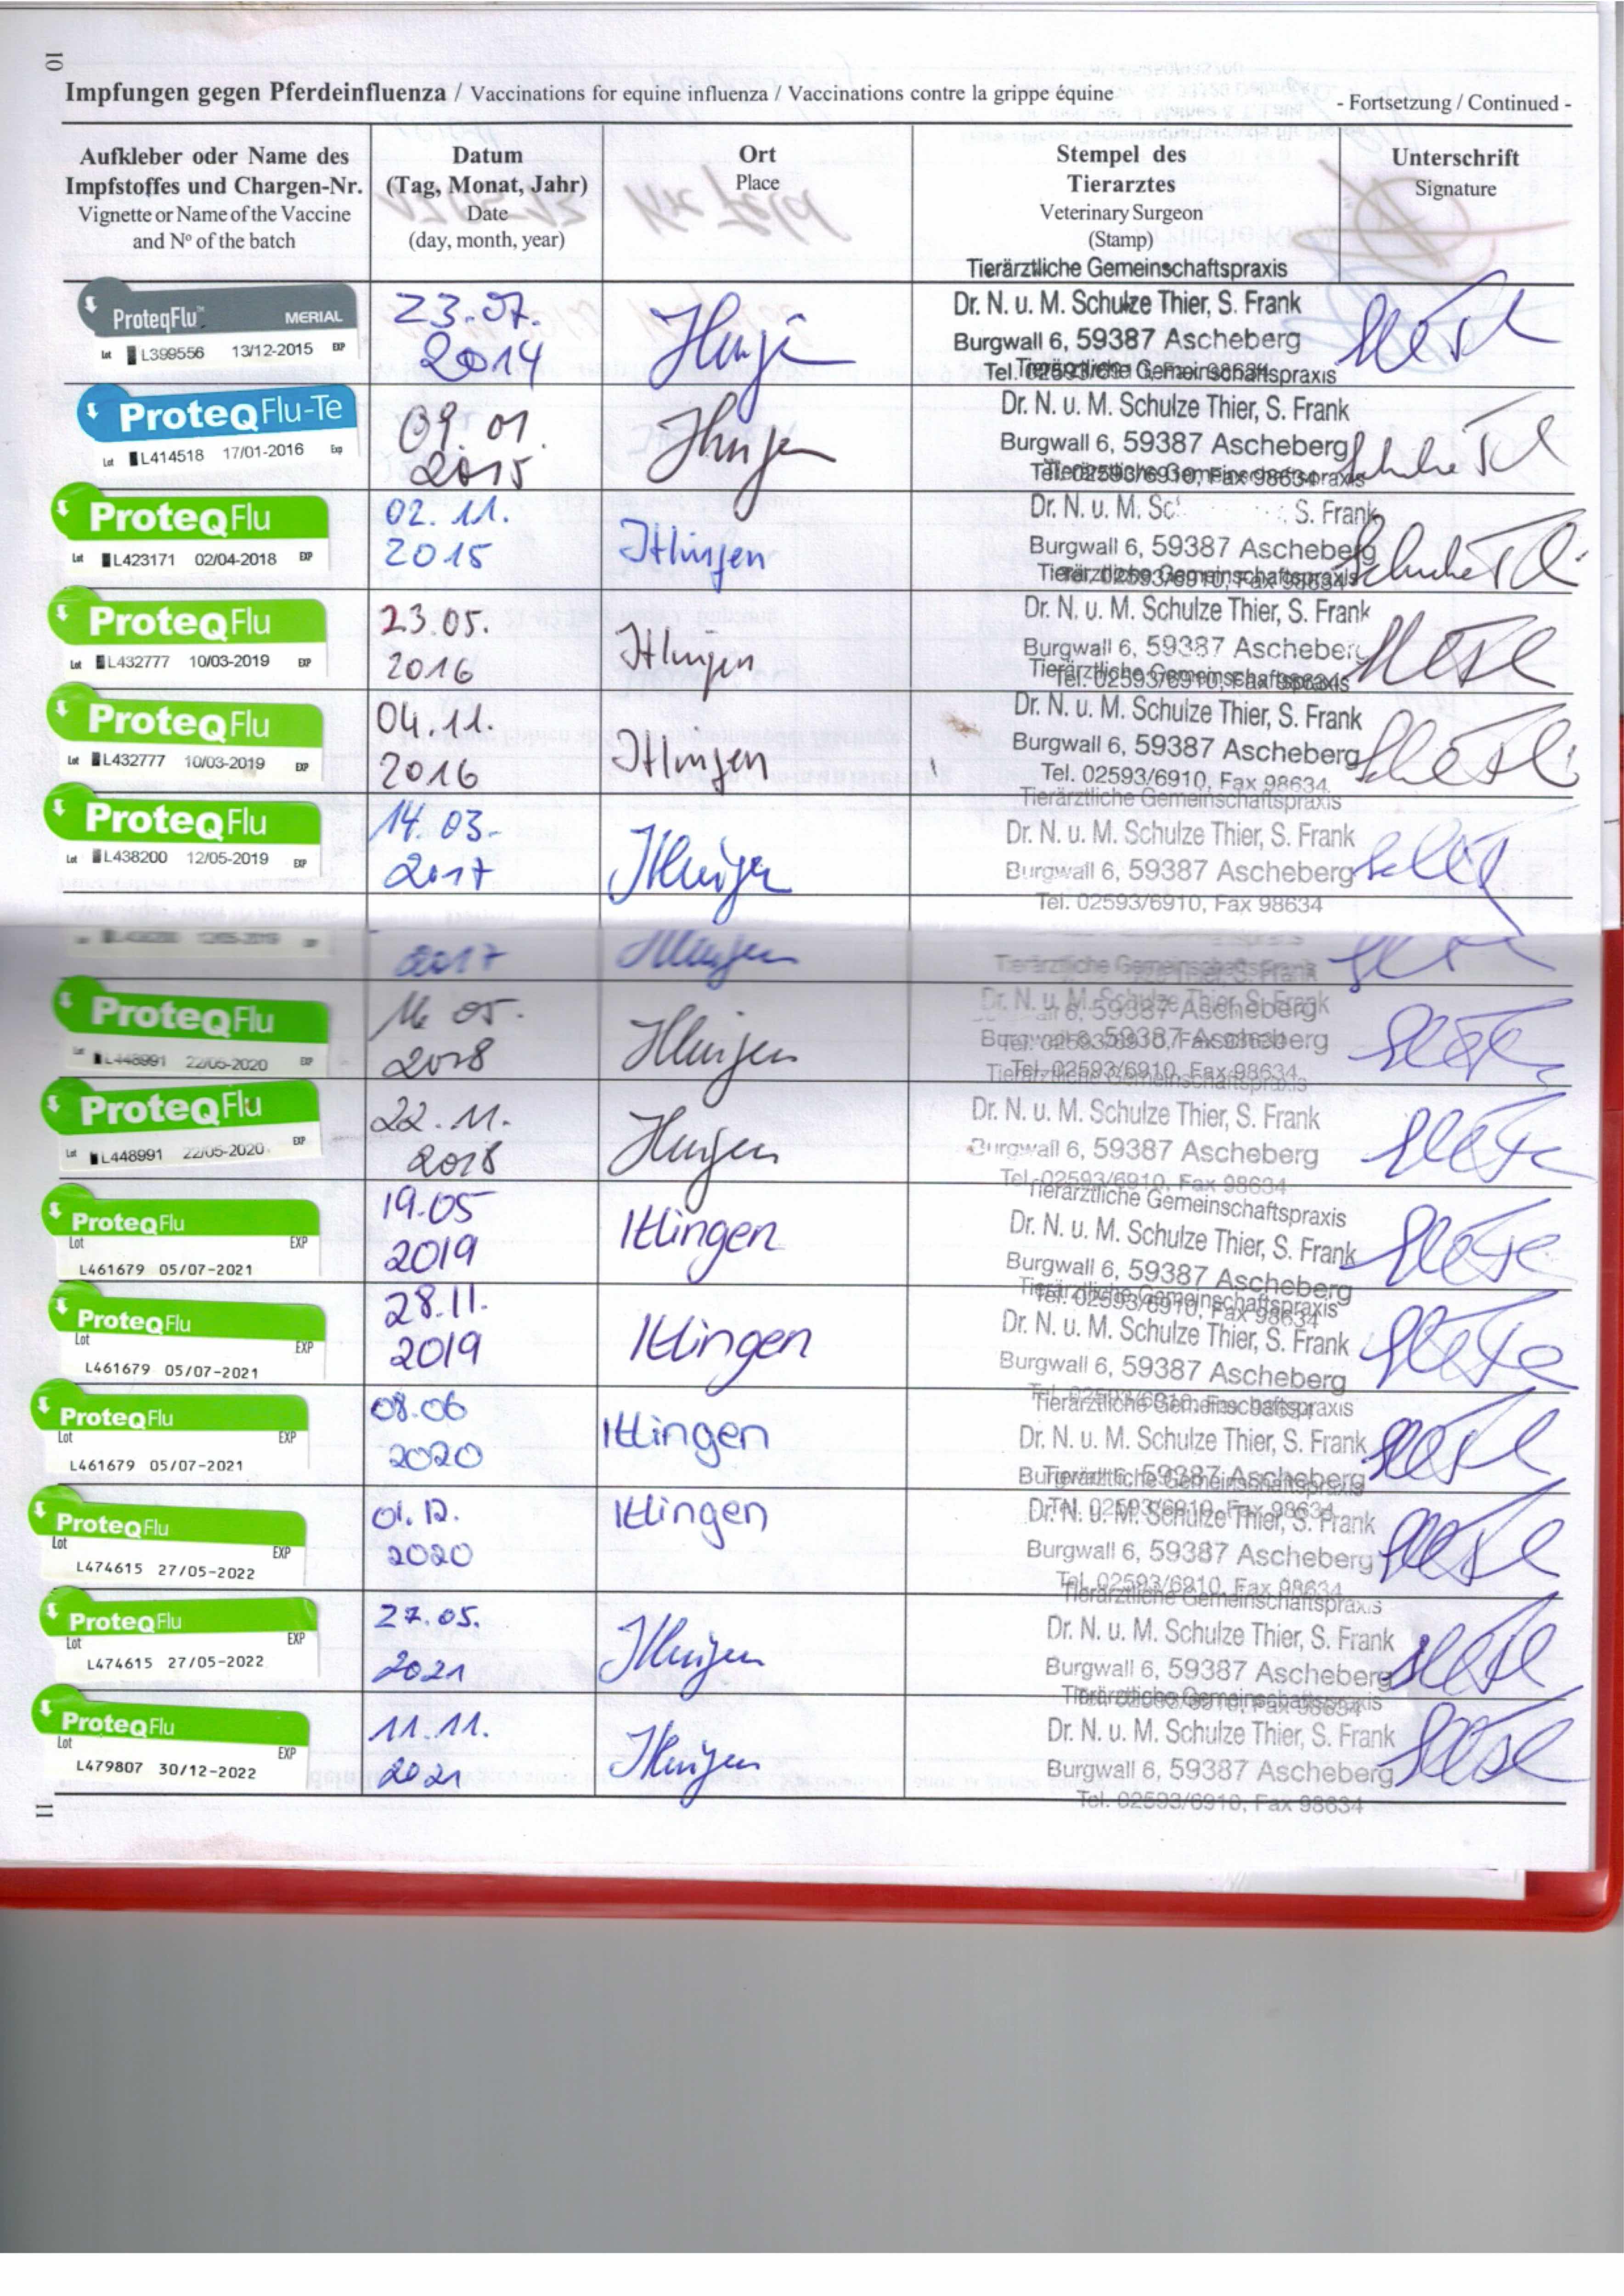 10
Impfungen gegen Pferdeinfluenza / Vaccinations for equine influenza / Vaccinations contre la grippe équine
- Fortsetzung / Continued -
Aufkleber oder Name des
Impfstoffes und Chargen-Nr.
Vignette or Name of the Vaccine
and Nº of the batch
Datum
(Tag, Monat, Jahr)
Date
(day, month, year)
Ort
Place
Stempel des
Tierarztes
Veterinary Surgeon
(Stamp)
Unterschrift
Signature
ProteqFlu™ MERIAL
Lot L399556 13/12-2015 EXP
23.07.
2014
Tierärztliche Gemeinschaftspraxis
Dr. N. u. M. Schulze Thier, S. Frank
Burgwall 6, 59387 Ascheberg
Tel. 02593/6910, Fax 98634
ProteqFlu-Te
Lot L414518 17/01-2016 Exp
09.01.
2015
Tierärztliche Gemeinschaftspraxis
Dr. N. u. M. Schulze Thier, S. Frank
Burgwall 6, 59387 Ascheberg
Tel. 02593/6910, Fax 98634
ProteqFlu
Lot L423171 02/04-2018 EXP
02.11.
2015
Ittlingen
Tierärztliche Gemeinschaftspraxis
Dr. N. u. M. Sc S. Frank
Burgwall 6, 59387 Ascheberg
Tel. 02593/6910, Fax 98634
ProteqFlu
Lot L432777 10/03-2019 EXP
23.05.
2016
Ittlingen
Tierärztliche Gemeinschaftspraxis
Dr. N. u. M. Schulze Thier, S. Frank
Burgwall 6, 59387 Ascheberg
Tel. 02593/6910, Fax 98634
ProteqFlu
Lot L432777 10/03-2019 EXP
04.11.
2016
Ittlingen
Tierärztliche Gemeinschaftspraxis
Dr. N. u. M. Schulze Thier, S. Frank
Burgwall 6, 59387 Ascheberg
Tel. 02593/6910, Fax 98634
ProteqFlu
Lot L438200 12/05-2019 EXP
14.03.
2017
Ittlingen
Tierärztliche Gemeinschaftspraxis
Dr. N. u. M. Schulze Thier, S. Frank
Burgwall 6, 59387 Ascheberg
Tel. 02593/6910, Fax 98634
2017
Ittlingen
Tierärztliche Gemeinschaftspraxis
ProteqFlu
Lot L448991 22/05-2020 EXP
05.
2018
Ittlingen
Dr. N. u. M. Schulze Thier, S. Frank
Burgwall 6, 59387 Ascheberg
Tel. 02593/6910, Fax 98634
ProteqFlu
Lot L448991 22/05-2020 EXP
22.11.
2018
Ittlingen
Tierärztliche Gemeinschaftspraxis
Dr. N. u. M. Schulze Thier, S. Frank
Burgwall 6, 59387 Ascheberg
Tel. 02593/6910, Fax 98634
ProteqFlu
Lot EXP
L461679 05/07-2021
19.05
2019
Ittlingen
Tierärztliche Gemeinschaftspraxis
Dr. N. u. M. Schulze Thier, S. Frank
Burgwall 6, 59387 Ascheberg
Tel. 02593/6910, Fax 98634
ProteqFlu
Lot EXP
L461679 05/07-2021
28.11.
2019
Ittlingen
Tierärztliche Gemeinschaftspraxis
Dr. N. u. M. Schulze Thier, S. Frank
Burgwall 6, 59387 Ascheberg
Tel. 02593/6910, Fax 98634
ProteqFlu
Lot EXP
L461679 05/07-2021
08.06
2020
Ittlingen
Tierärztliche Gemeinschaftspraxis
Dr. N. u. M. Schulze Thier, S. Frank
Burgwall 6, 59387 Ascheberg
Tel. 02593/6910, Fax 98634
ProteqFlu
Lot EXP
L474615 27/05-2022
01.12.
2020
Ittlingen
Tierärztliche Gemeinschaftspraxis
Dr. N. u. M. Schulze Thier, S. Frank
Burgwall 6, 59387 Ascheberg
Tel. 02593/6910, Fax 98634
ProteqFlu
Lot EXP
L474615 27/05-2022
27.05.
2021
Ittlingen
Tierärztliche Gemeinschaftspraxis
Dr. N. u. M. Schulze Thier, S. Frank
Burgwall 6, 59387 Ascheberg
ProteqFlu
Lot EXP
L479807 30/12-2022
11.11.
2021
Ittlingen
Tierärztliche Gemeinschaftspraxis
Dr. N. u. M. Schulze Thier, S. Frank
Burgwall 6, 59387 Ascheberg
Tel. 02593/6910, Fax 98634
11